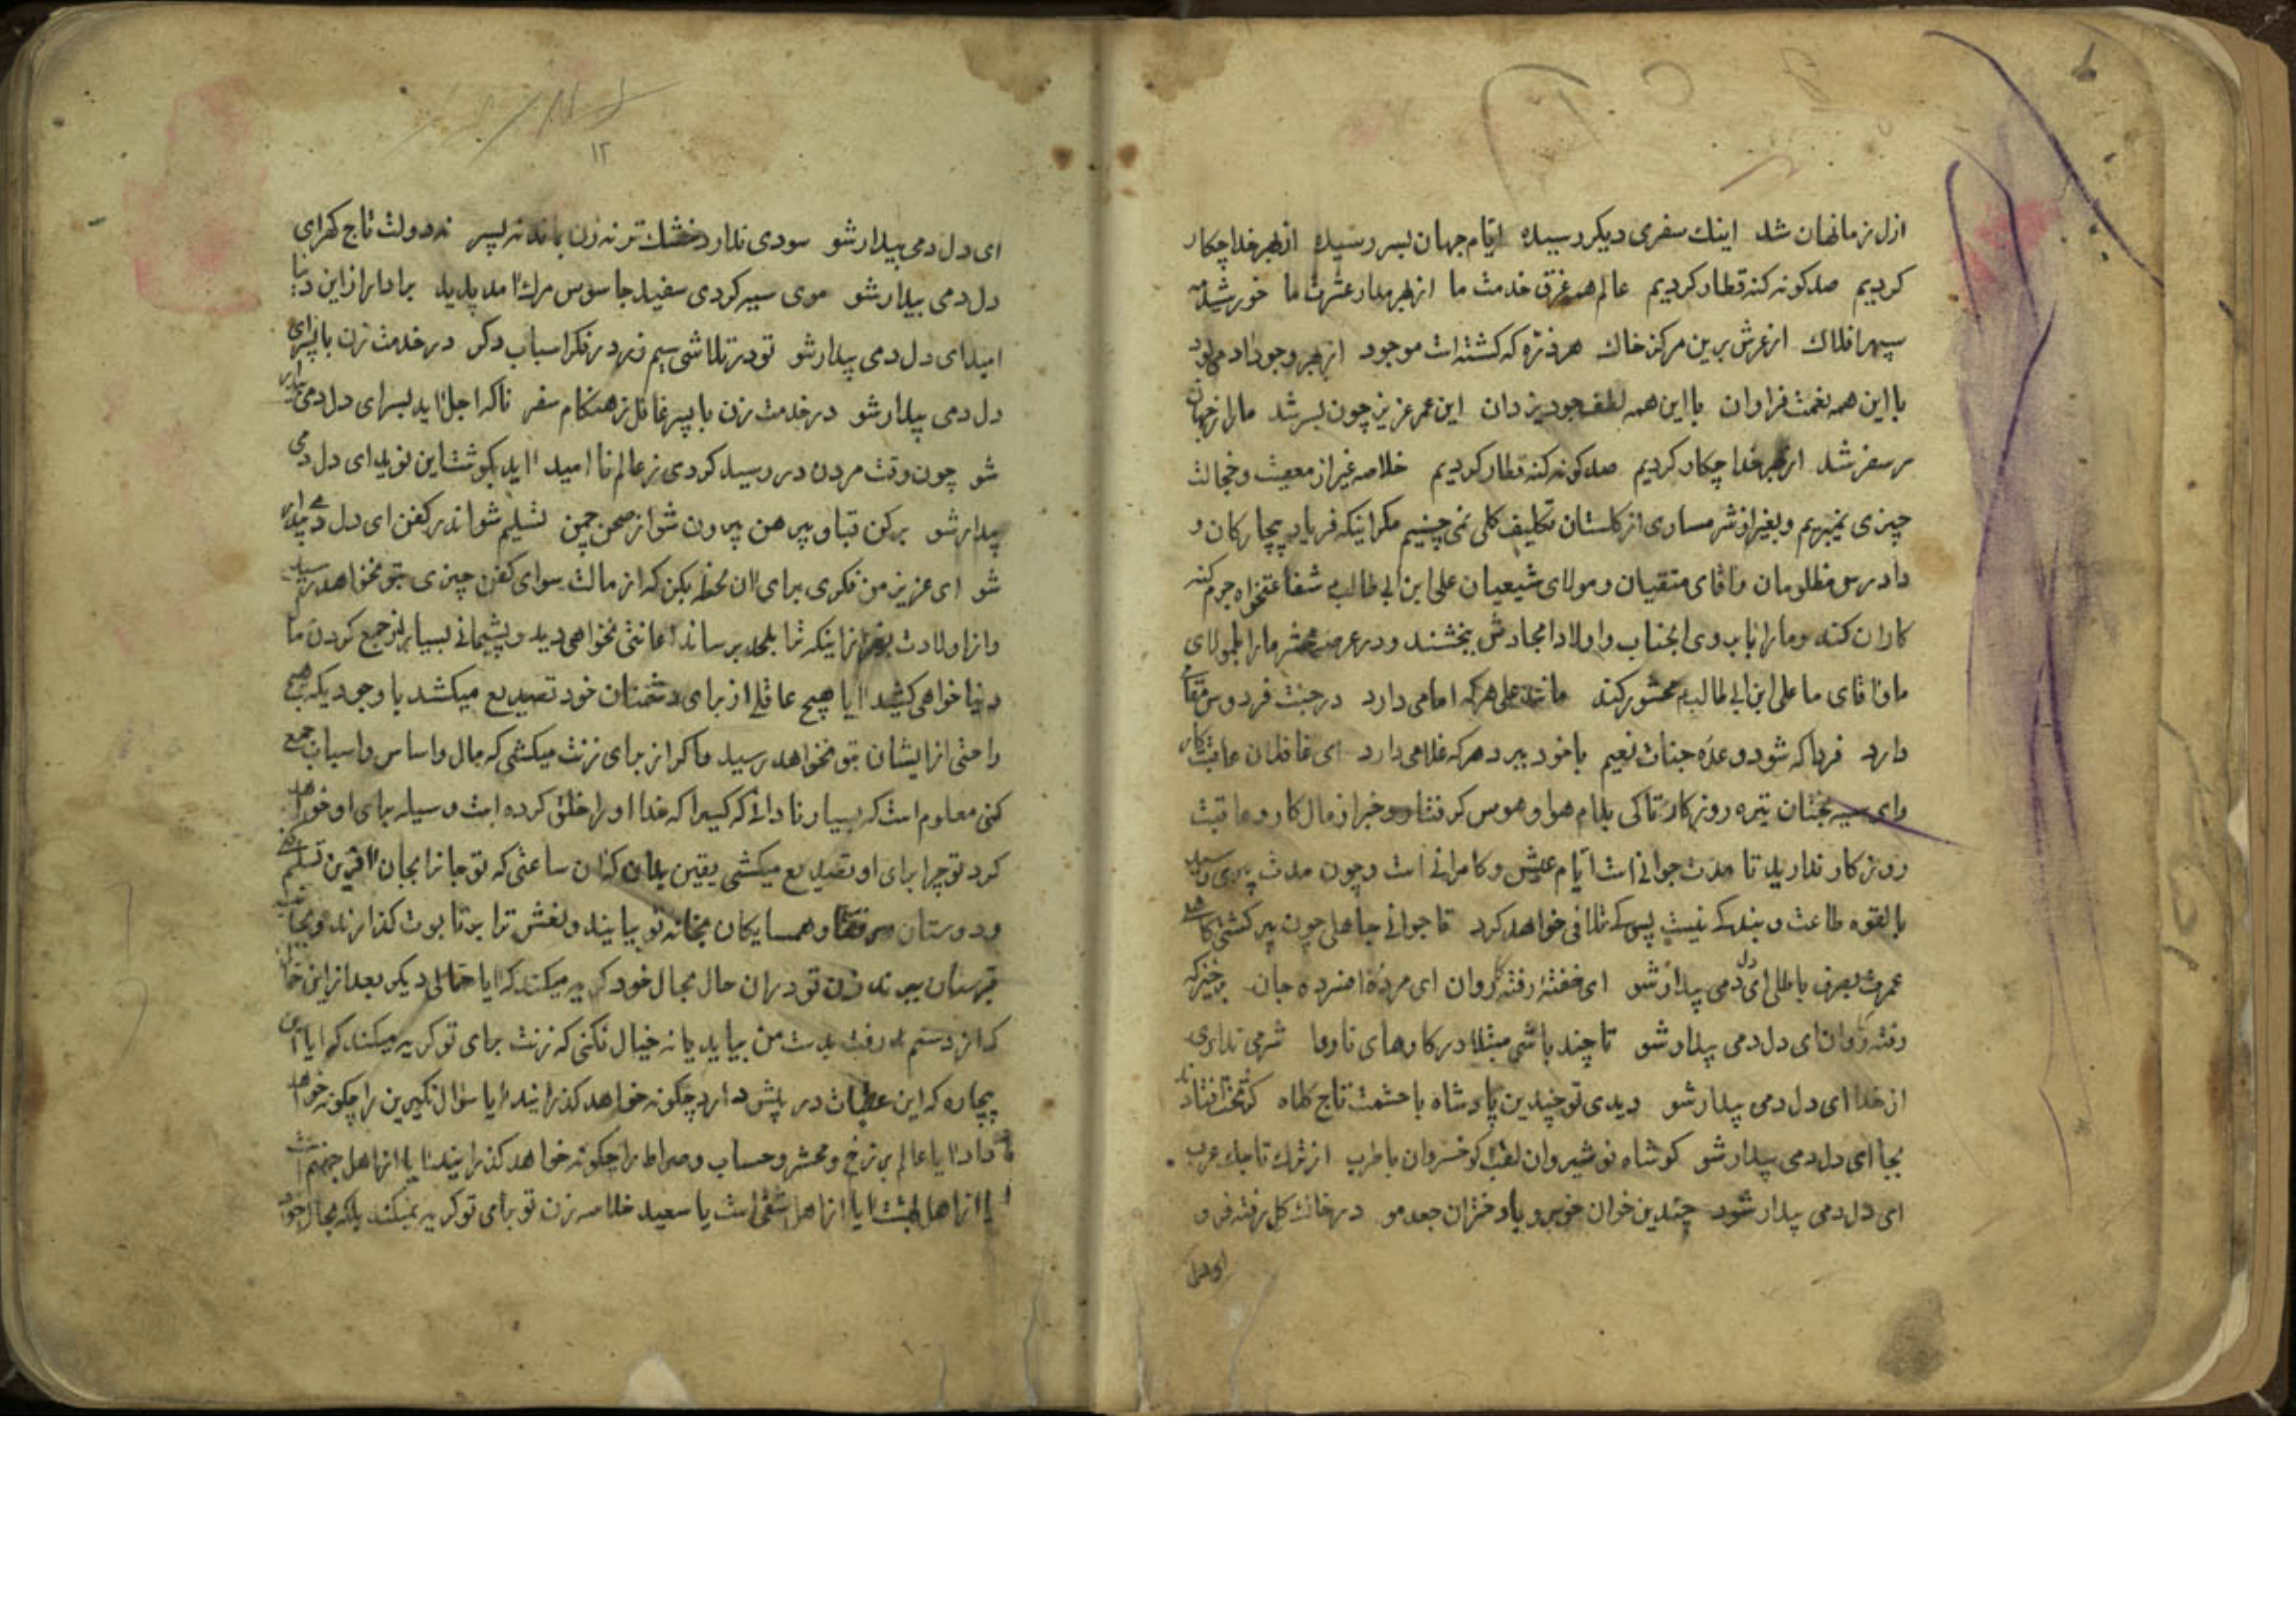 ازل ز ما نهان شد اینک سفری دیکر رسیده ایام جهان بسر رسیده از بهر خدا چکار
کردیم صد کونه کنه قطار کردیم عالم همه غرق خدمت ما از بهر مدار عشرت ما خورشید مه
سپهر افلاک از عرش برین مرکز خاک هر ذرّه که کشته است موجود از بهر وجود ادمی بود
با این همه نغمت فراوان با این همه لطف جود یزدان این عمر عزیز چون بسر شد ما را ز جهان
سر سفر شد از بهر خدا چکار کردیم صد کونه کنه قطار کردیم خلاصه غیر از معصیت و خجالت
چیزی نمیبریم و بغیر از شرمساری از کلستان تکلیف کلی نمی چینیم مکر اینکه فریاد رس بیچارکان و
دادرس مظلومان و اقای متقیان و مولای شیعیان علی ابن ابی طالب شفاعتخواه جرم کنه
کاران کند و ما را باب وی انجناب و اولاد امجادش ببخشند و در عرصه محشر ما را با مولای
ما و اقای ما علی ابن ابی طالب محشور کند مانند علی هر که امامی دارد در جنت فردوس مقامی
دارد فردا که شود وعده جنات نعیم با خود ببرد هر که غلامی دارد ای غافلان عاقبت کار
وای سیه بختان تیره روزکار تا کی بدام هوا و هوس کرفتار و خبر از مال کار و عاقبت
روزکار ندارید تا مدت جوانی است ایام عیش و کامرانی است و چون مدت پیری رسید
بالقوه طاعت و بندکی نیست پس کی تلافی خواهد کرد تا جوانی جاهلی چون پیر کشتی کاهلی
عمرت بصرف باطلی ای دل دمی بیدار شو ای خفته رفته کاروان ای مردهٔ افسرده جان برخیز که
رفته کاروان ای دل دمی بیدار شو تا چند باشی مبتلا در کارهای ناروا شرمی نداری
از خدا ای دل دمی بیدار شو دیدی تو چندین پادشاه با حشمت تاج کلاه کز تخت افتاد
بجا ای دل دمی بیدار شو کو شاه نوشیروان لقب کو خسروان با طرب از ترک تاجیک عرب
ای دل دمی بیدار شود چندین خوان خوبرو با دختران جعد مو در خاک کل رفته فرو
ای دل
۱۲
ای دل دمی بیدار شو سودی ندارد خشک تر نه زن بماند نه پسر نه دولت تاج کهر ای
دل دمی بیدار شو موی سیه کردی سفید جاسوس مرک امد پدید بردار از این دنیا
امید ای دل دمی بیدار شو تو در تلاشی سیم و زر در فکر اسباب دکر در خدمت زن با پسر ای
دل دمی بیدار شو در خدمت زن با پسر غافل ز هنکام سفر ناکه اجل اید بسر ای دل دمی بیدار
شو چون وقت مردن در رسید کردی ز عالم نا امید اید بکوشت این نوید ای دل دمی
بیدار شو برکن قبا و پیرهن بیرون شو از صحن چمن تسلیم شو اندر کفن ای دل دمی بیدار
شو ای عزیز من فکری برای ان لحظه بکن که از مالت سوای کفن چیزی بتو نخواهد رسید
و از اولادت بغیر از اینکه ترا بلحد برساند اعانتی نخواهی دید و پشیمانی بسیار از جمع کردن مال
دنیا خواهی کشید ایا هیچ عاقلی از برای دشمنان خود تصدیع میکشد با وجودیکه هیچ
راحتی از ایشان بتو نخواهد رسید و اکر از برای زنت میکشی که مال و اساس و اسباب جمع
کنی معلوم است که بسیار نادانی که کسیرا که خدا او را خلق کرده است وسیله برای او خواهد
کرد تو چرا برای او تصدیع میکشی یقین بدان که ان ساعتی که تو جانرا بجان افرین تسلیم کنی
و دوستان و رفقا و همسایکان بخانه تو بیایند و نعش ترا بر تابوت کذارند و بجانب
قبرستان ببرند زن تو دران حال بحال خود کریه میکند که ایا حمالی دیکر بعد از این حمال
که از دستم در رفت بدست من بیاید یا نه خیال نکنی که زنت برای تو کریه میکند که ایا این
بیچاره که این عقبات در پیش دارد چکونه خواهد کذرانید ایا سؤال نکیرین را چکونه خواهد
داد ایا عالم برزخ و محشر و حساب و صراط را چکونه خواهد کذرانید ایا از اهل جهنم است
یا از اهل بهشت ایا از اهل شقی است یا سعید خلاصه زن تو برای تو کریه نمیکند بلکه بحال خود